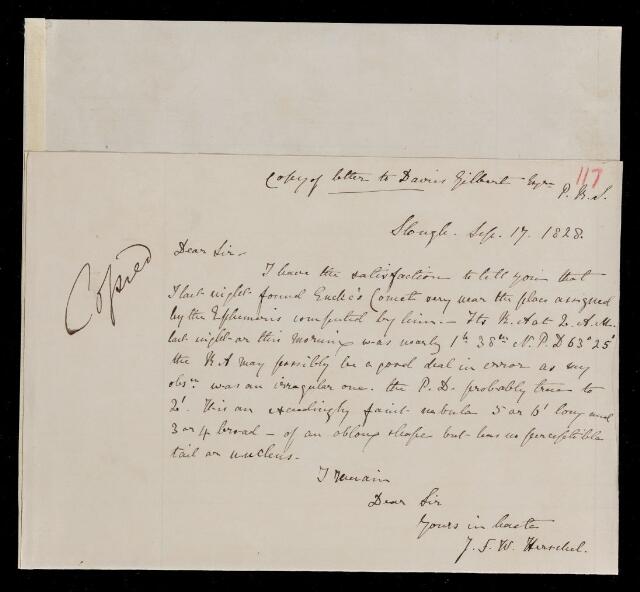 Copy of letter to Davies Gilbert Esqre
117
P.R.S.
Slough. Sep. 17. 1828.
Dear Sir,
Copied
I have the satisfaction to tell you that
I last night found Encke's Comet very near the place assigned
by the Ephemeris computed by him. - Its R.A at 2. A.M.
last night or this morning was nearly 1h 38m N.P.D 63° 25'
the RA may possibly be a good deal in error as my
obsn was an irregular one. the P.D. probably true to
2'. It is an exceedingly faint nebula 5 or 6' long and
3 or 4 broad - of an oblong shape but has no perceptible
tail or nucleus.
I remain
Dear Sir
Yours in haste
J. F. W. Herschel.